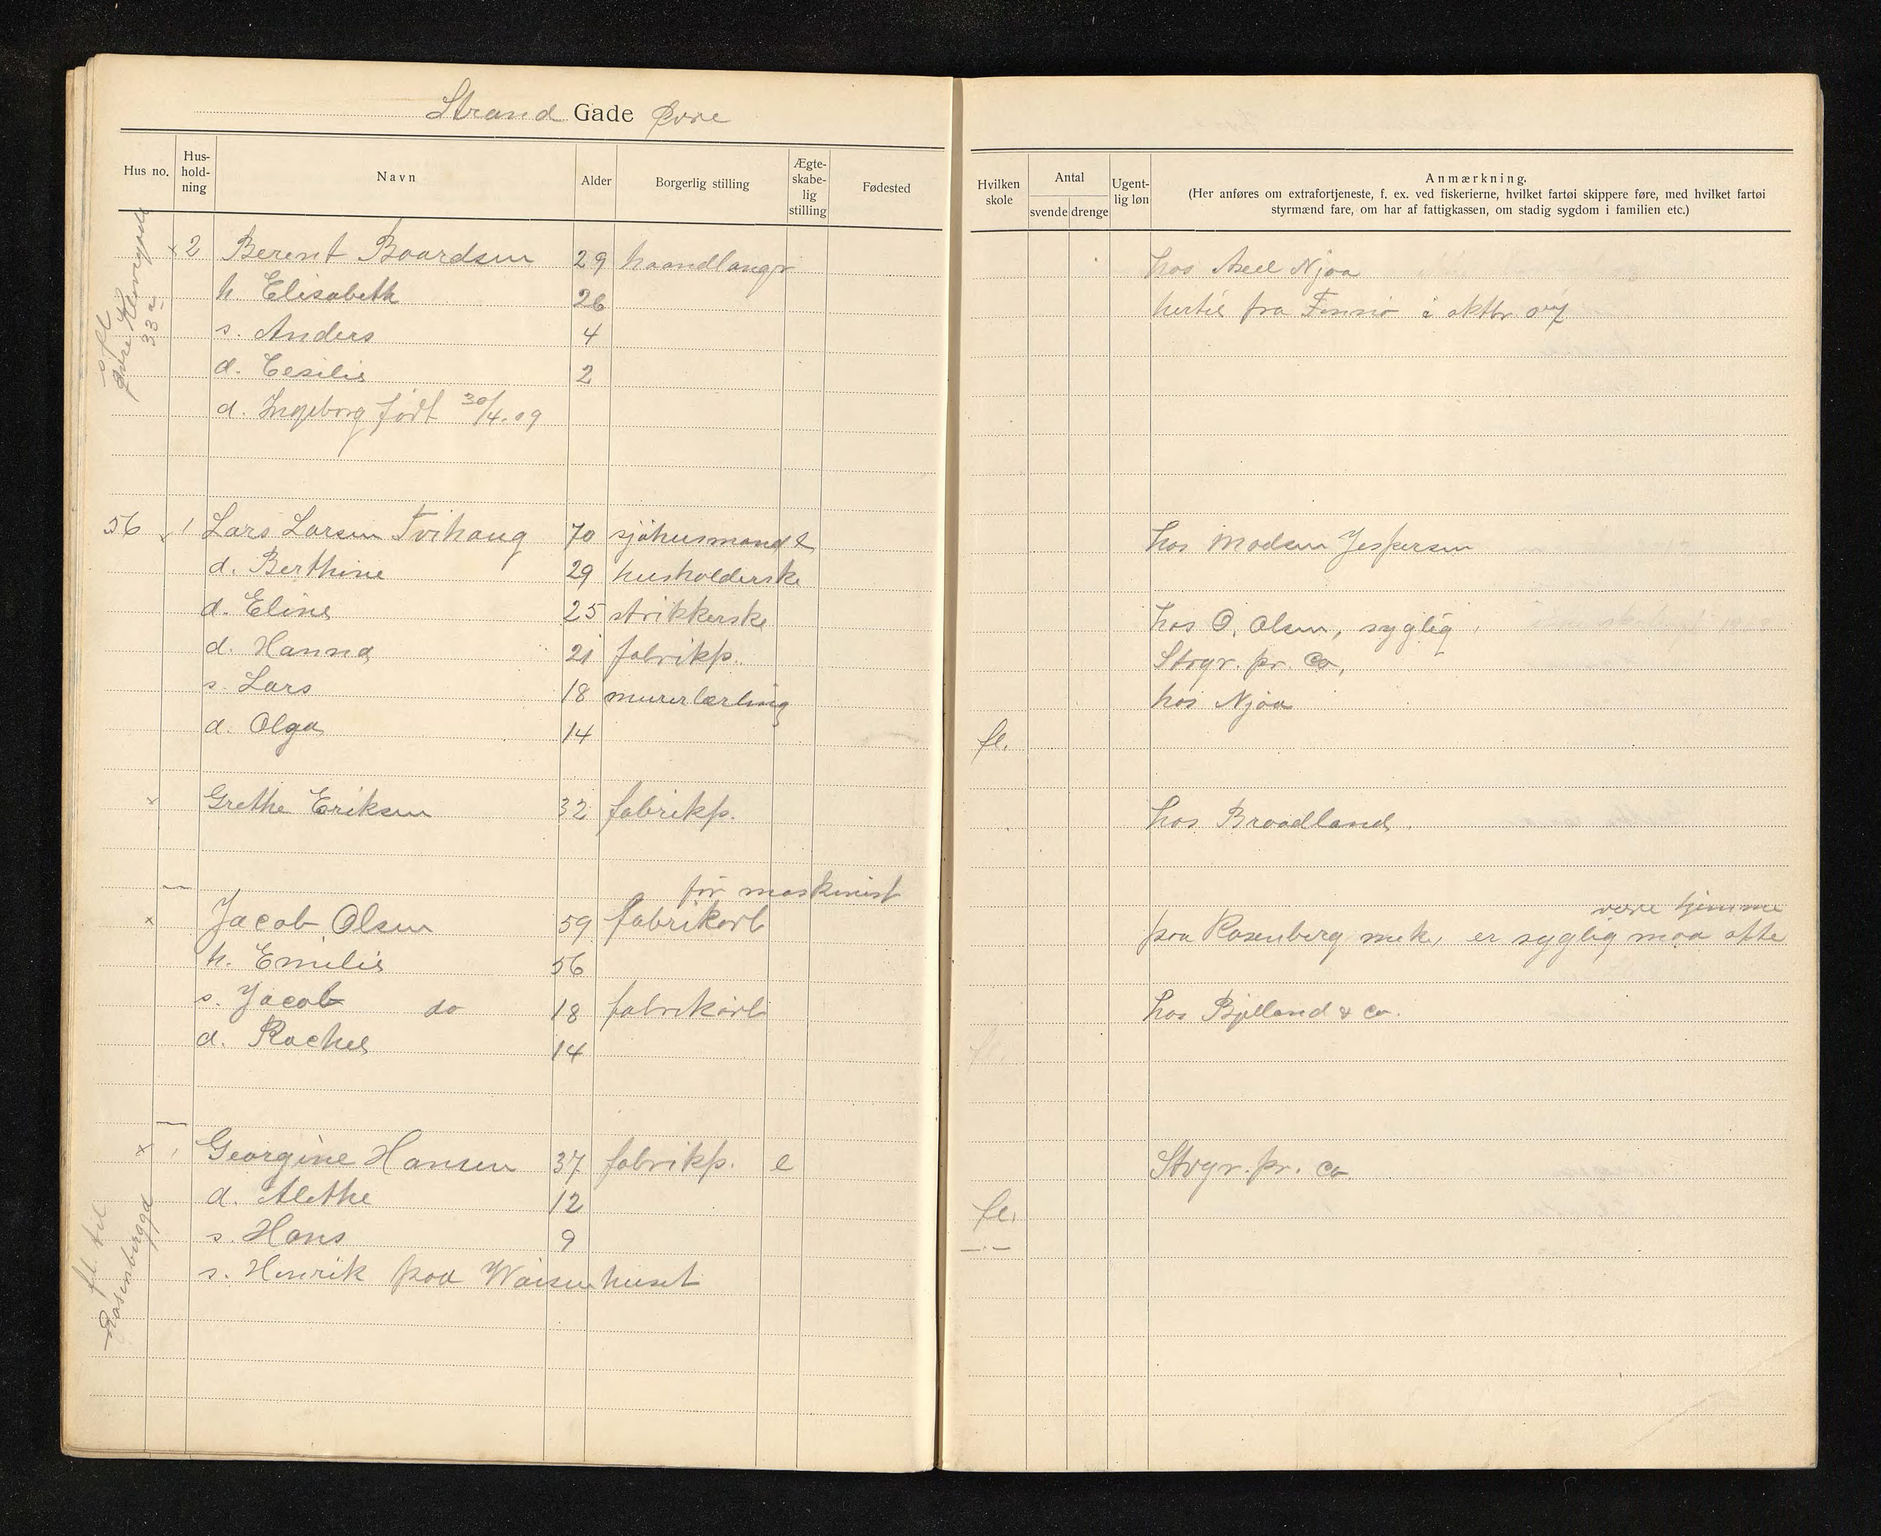 Strand Gade Øvre
Hus no. Hus-hold-ning Navn Alder Borgerlig stilling Ægte-skabe-lig stilling Fødested Hvilken skole Antal svende drenge Ugent-lig løn Anmærkning.
(Her anføres om extrafortjeneste, f. ex. ved fiskerierne, hvilket fartøi skippere føre, med hvilket fartøi
styrmænd fare, om har af fattigkassen, om stadig sygdom i familien etc.)
x 2 Berent Baardsen 29 haandlanger hos Axel Njaa
h Elisabeth 26 hertil fra Finnø i oktbr 07
s. Anders 4
d. Cesilie 2
d. Ingeborg født 30/4.09
Øvre Kleivegade
33a
56 1 Lars Larsen Tvihaug 70 sjøhusmand e hos Madsen Jespersen
d. Berthine 29 husholderske
d. Eline 25 strikkerske hos O. Olsen, syglig
d. Hanna 21 fabrikp. Stvgr. pr. Co.
s. Lars 18 murerlærling hos Njaa
d. Olga 14 fl.
x Grethe Eriksen 32 fabrikp. hos Braadland.
før maskinist
være hjemme
x Jacob Olsen 59 fabrikarb paa Rosenberg mek, er syglig maa ofte
h. Emilie 56
s. Jacob do 18 fabrikarb hos Bjelland & Co.
d. Rachel 14 fl.
x Georgine Hansen 37 fabrikp. e Stvgr. pr. Co.
d. Alethe 12 fl.
s. Hans 9 —"—
s. Henrik paa Waisenhuset
fl. til
Rosenberggd